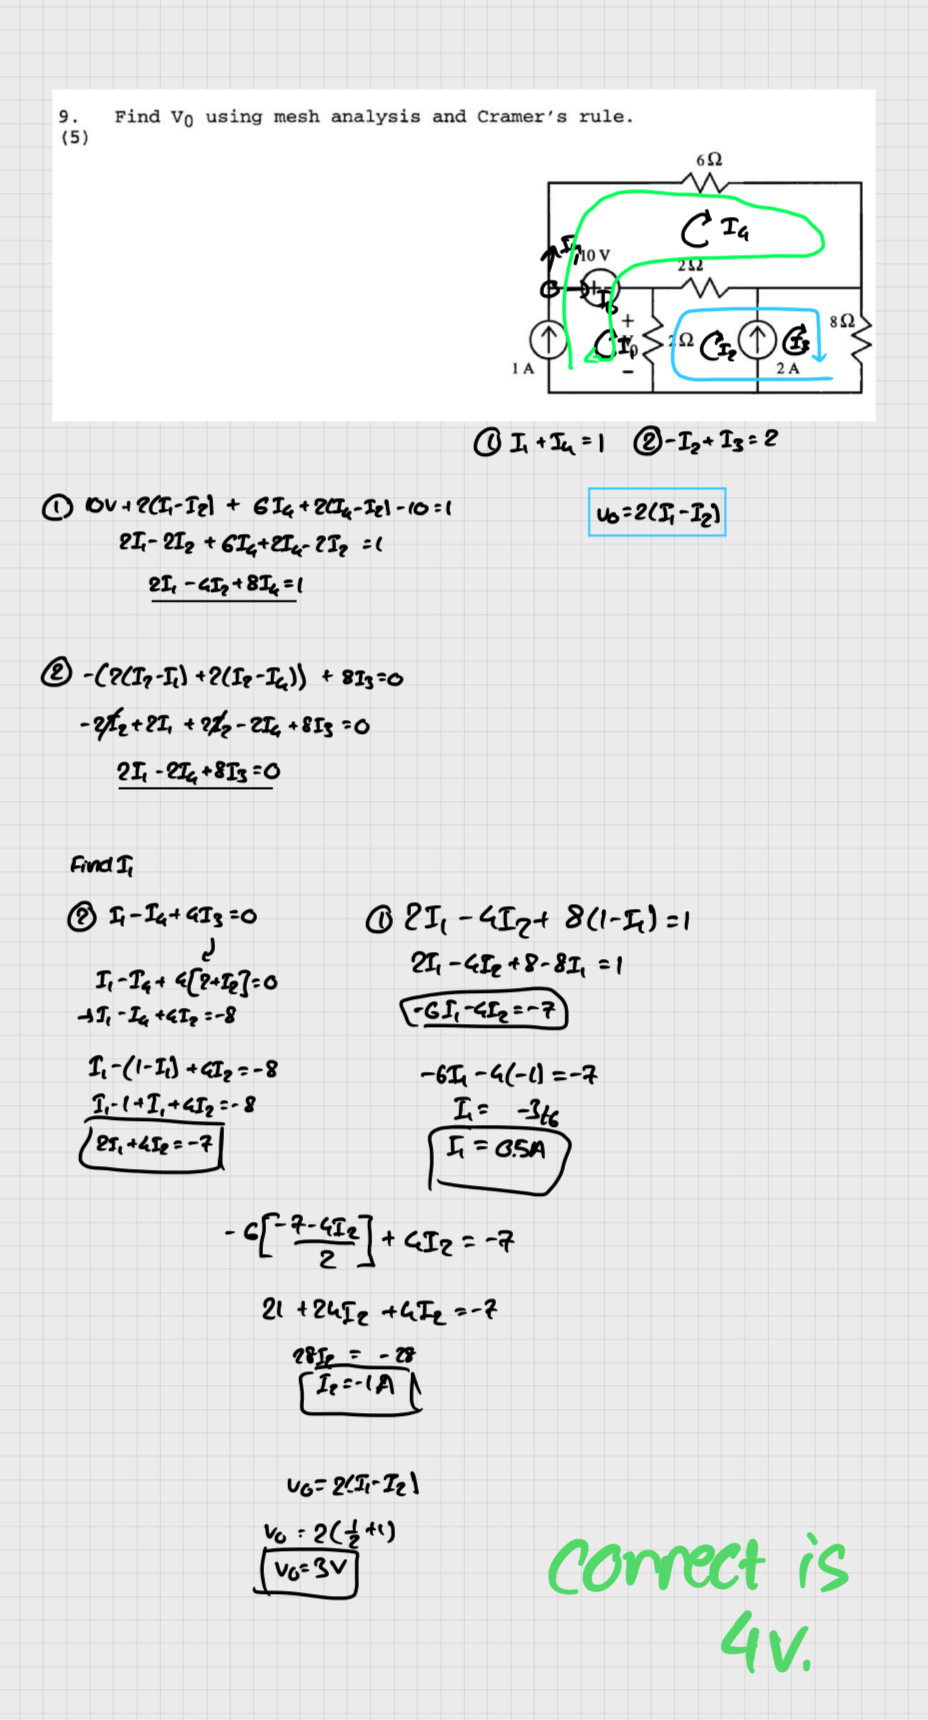 9. Find V0 using mesh analysis and Cramer's rule.
(5)
6Ω
I4
I1
10 V
2Ω
+
I1
2Ω
I2
I3
8Ω
1 A
-
2 A
① I1 + I4 = 1 ② -I2 + I3 = 2
① 10V + 2(I1-I2) + 6I4 + 2(I4-I2) - 10 = 1
V0 = 2(I1-I2)
2I1 - 2I2 + 6I4 + 2I4 - 2I2 = 1
2I1 - 4I2 + 8I4 = 1
② -(2(I2-I1) + 2(I2-I4)) + 8I3 = 0
-2I2 + 2I1 + 2I2 - 2I4 + 8I3 = 0
2I1 - 2I4 + 8I3 = 0
Find I1
② I1 - I4 + 4I3 = 0
① 2I1 - 4I2 + 8(1-I1) = 1
2I1 - 4I2 + 8 - 8I1 = 1
I1 - I4 + 4[2+I2] = 0
-6I1 - 4I2 = -7
→ I1 - I4 + 4I2 = -8
I1 - (1-I1) + 4I2 = -8
-6I1 - 4(-1) = -7
I1 - 1 + I1 + 4I2 = -8
I1 =
2I1 + 4I2 = -7
I1 = 0.5A
-6[-7-4I2/2] + 4I2 = -7
21 + 24I2 + 4I2 = -7
28I2 = -28
I2 = -1A
V0 = 2(I1-I2)
V0 = 2(1/2 + 1)
V0 = 3V
Correct is
4V.